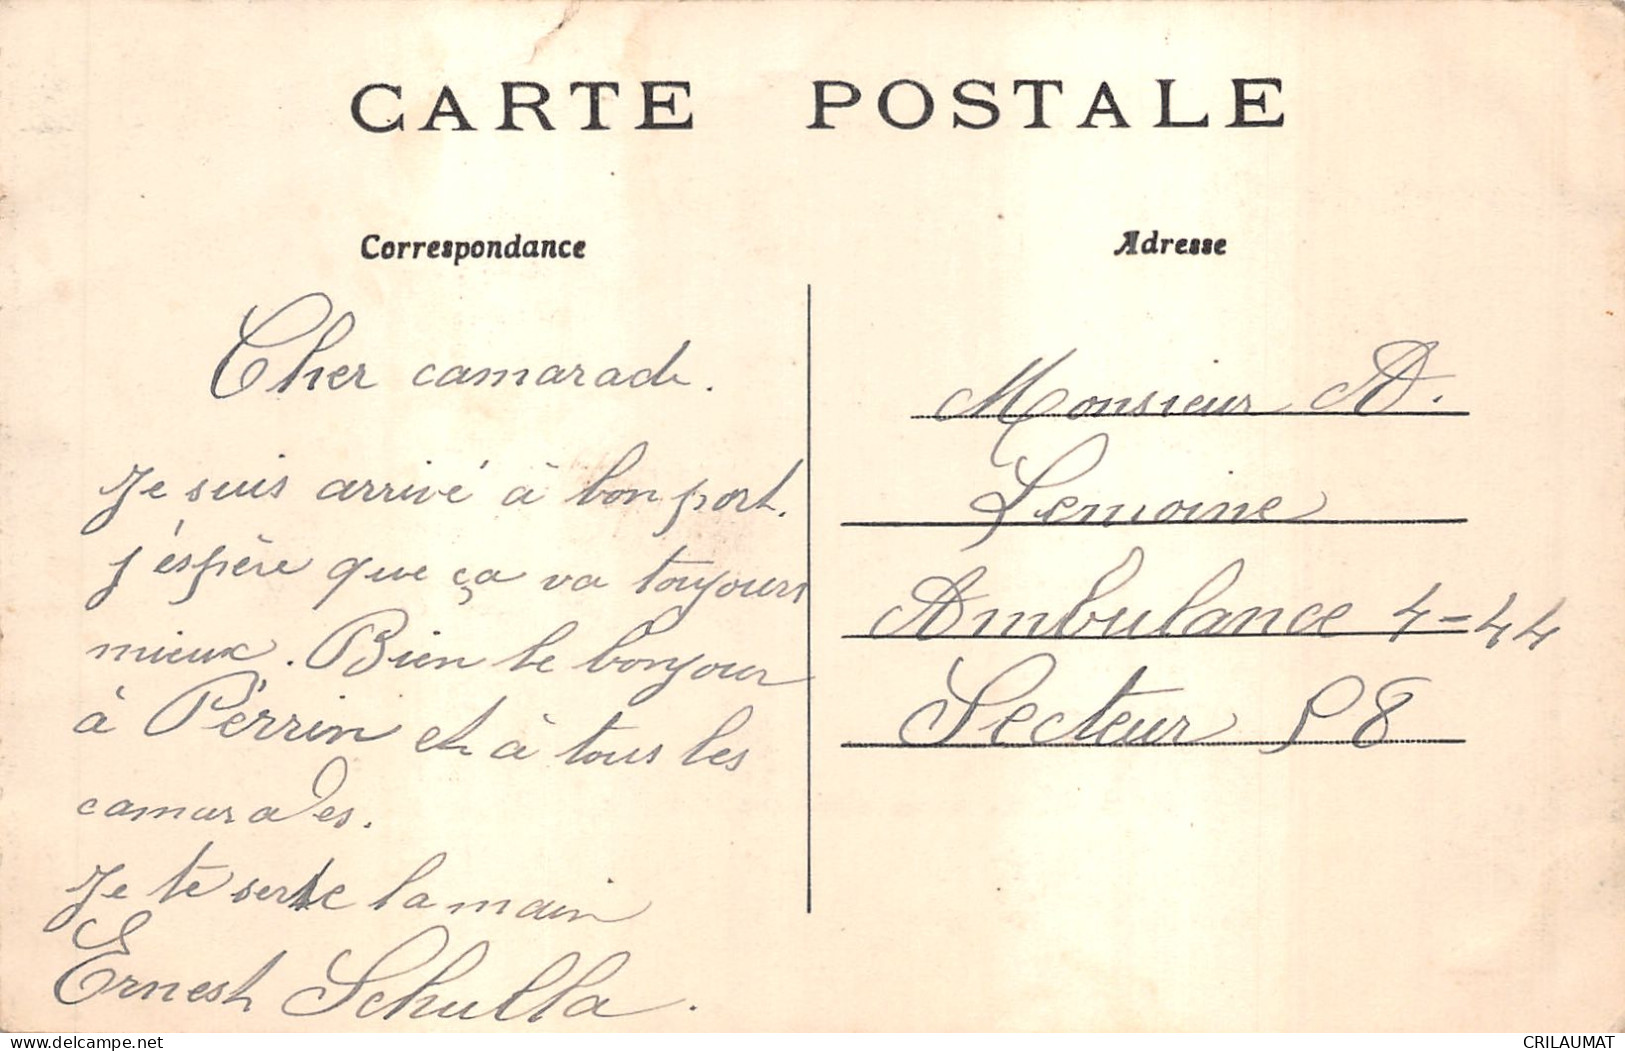 CARTE POSTALE
Correspondance
Cher camarade.
Je suis arrivé à bon port.
j'espère que ça va toujours
mieux. Bien le bonjour
à Pérrin et à tous les
camarades.
Je te serre la main
Ernest Schulla.
Adresse
Monsieur A.
Lemoine
Ambulance 4-44
Secteur 58
delcampe.net
CRILAUMAT